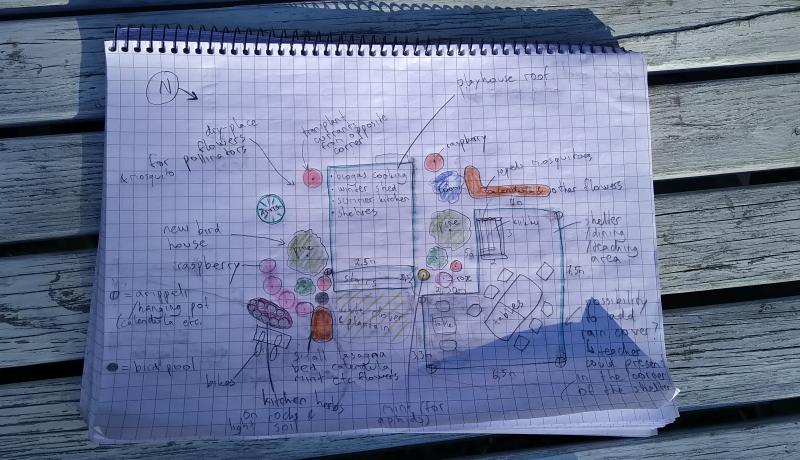 N
playhouse roof
dry-place
flowers
for pollinators
& mosquito
transplant
currants
from opposite
corner
raspberry
repels mosquitoes
calendula &
other flowers
• biogas cooking
• winter shed
• summer kitchen
• shelves
new bird
house
pine
pine
kitchen
3
shelter
/dining
/teaching
area
raspberry
2.5m
stairs
rose
7.5m
/hanging pot
(calendula etc.
clover
& plantain
table
tables
possibility
to add
rain cover?
↳ teacher
could present
in the corner
of the shelter
= bird pool
6,5m
bikes
small lasagna
bed - calendula
mint etc flowers
kitchen herbs
on rocks &
light soil
mint (for
aphids)